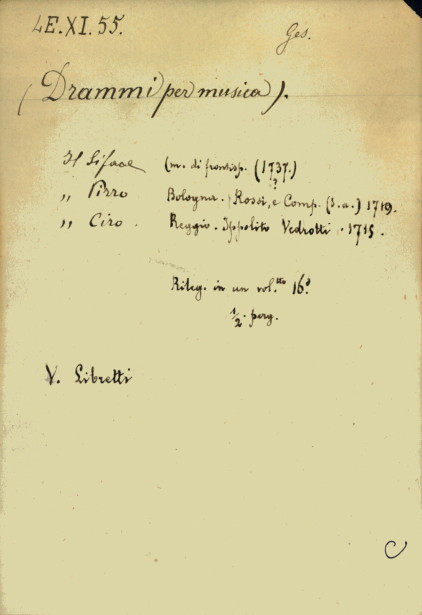 4E.XI.55.
Ges.
(Drammi per musica).
Il Siface (m. di frontisp. (1737.)
?
„ Pirro Bologna. Rossi, e Comp. (s.a.) 1719.
„ Ciro. Reggio. Ippolito Vedrotti. 1715.
Rileg. in un vol.tto 16.o
1/2. perg.
V. Libretti
C